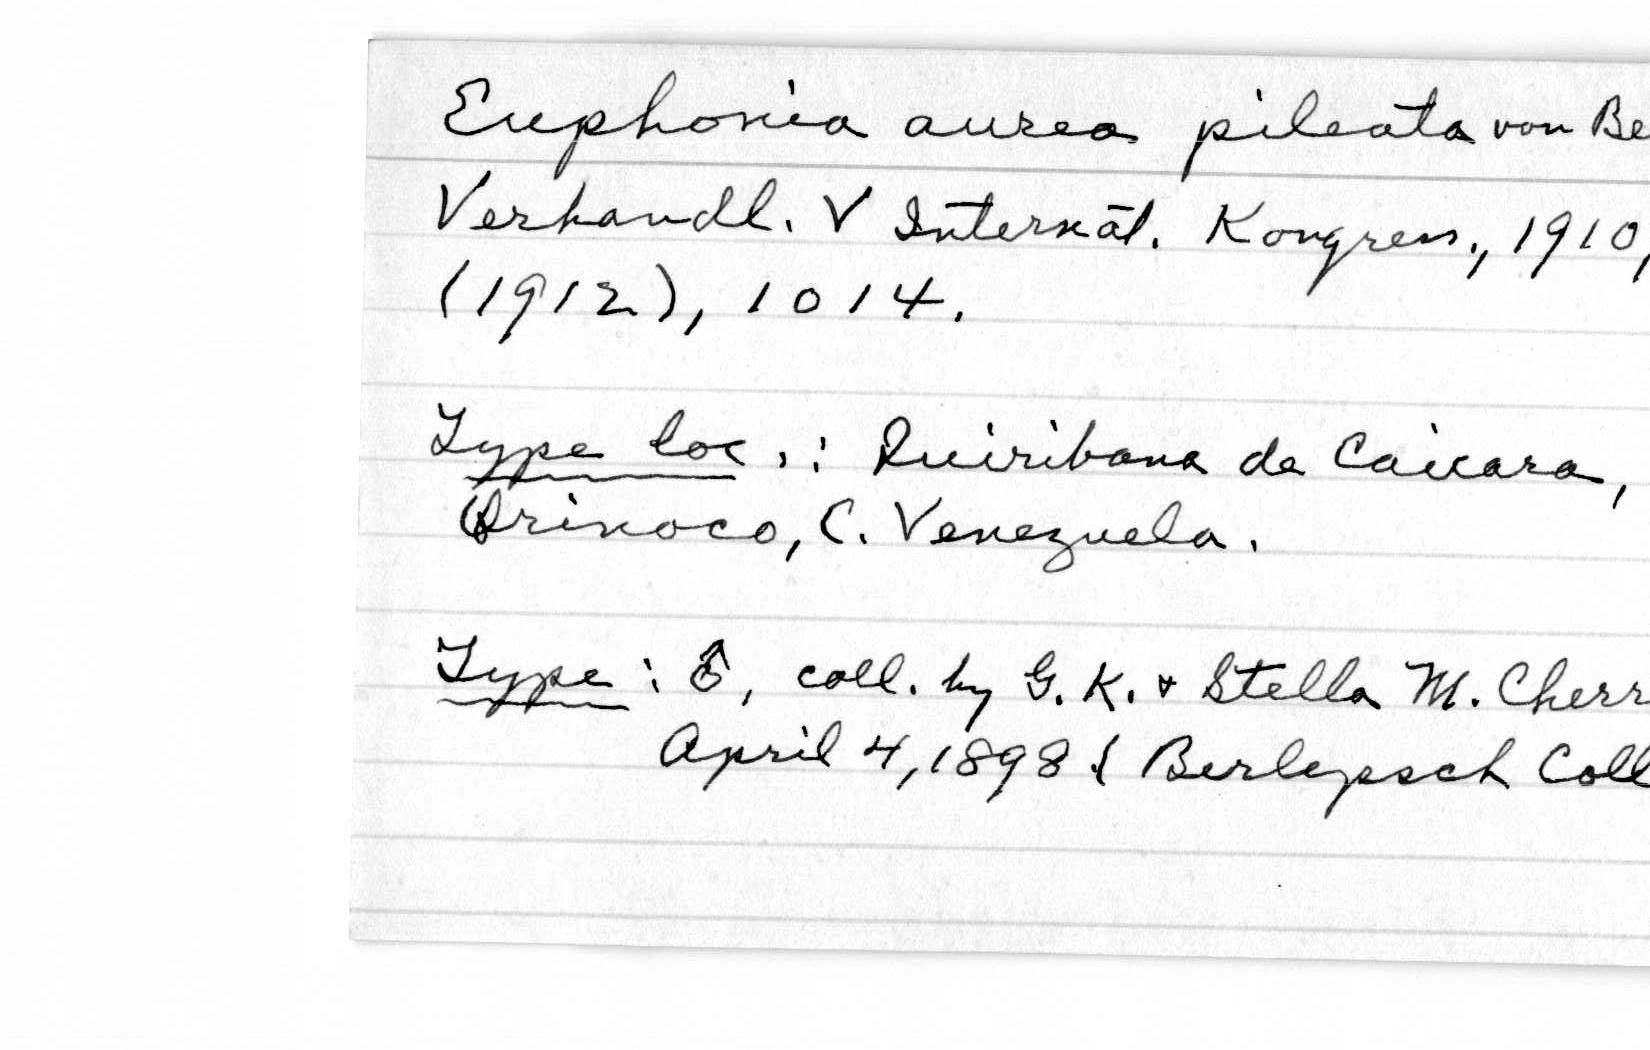 Euphonia aurea pileata von Be
Verhandl. V Internat. Kongress., 1910,
(1912), 1014.
Type loc.: Quiribana de Caicara,
Orinoco, C. Venezuela.
Type: ♂, coll. by G. K. + Stella M. Cherr
April 4, 1898 { Berlepsch Coll